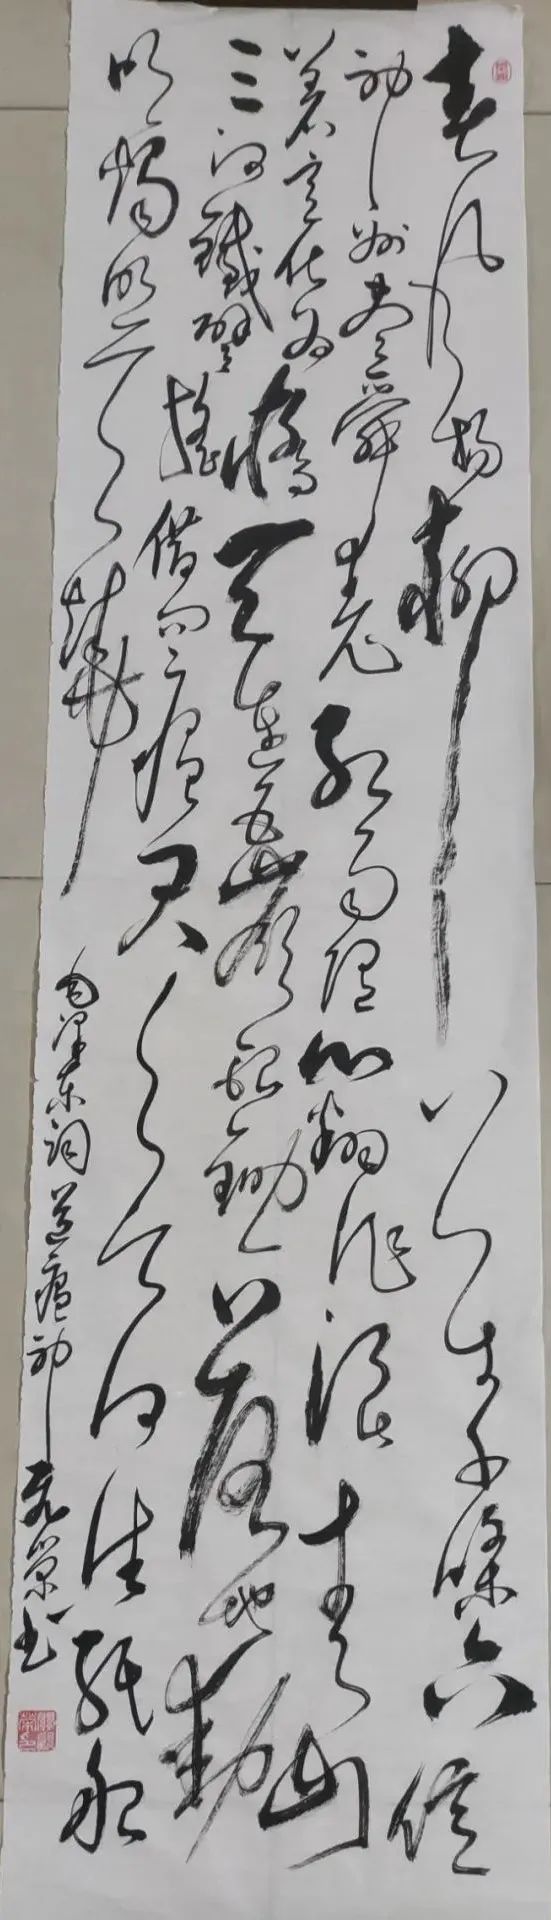 春风杨柳万千條六億
神州尽舜尧红雨随心翻作浪青山
着意化为橋天连五岭银锄落地動
三河鐵臂搖借问瘟君欲何往纸船
明燭照天烧
毛泽东词送瘟神 荣书